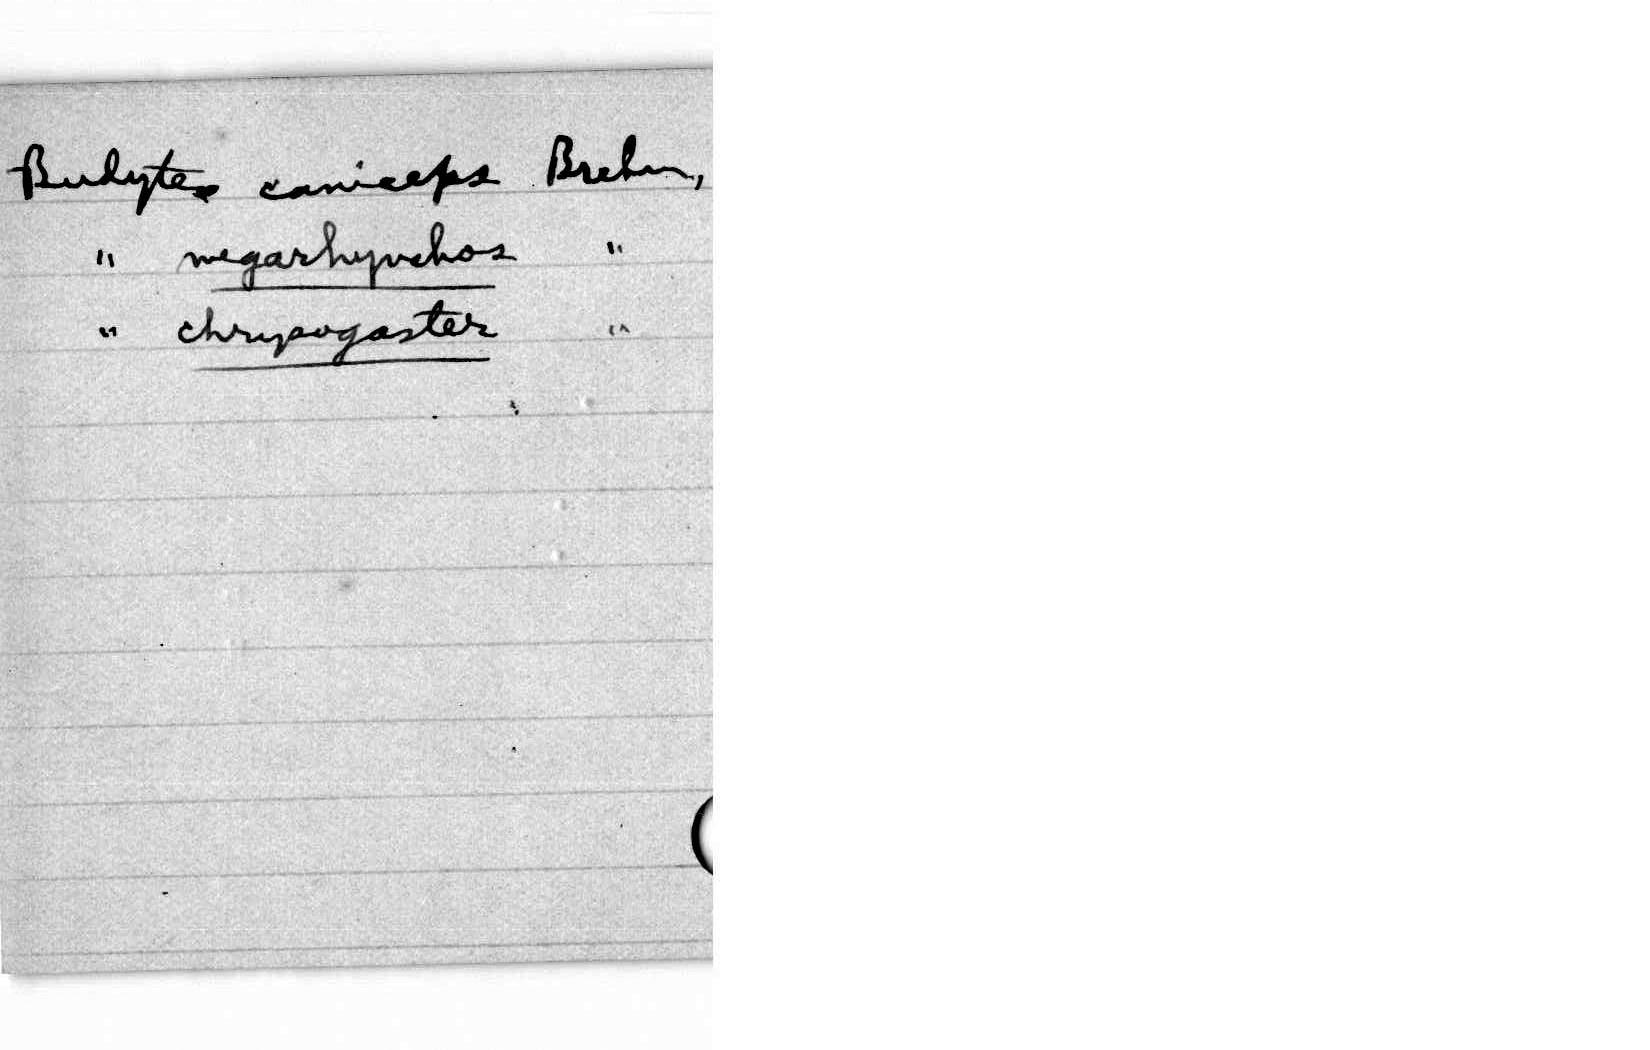 Budytes caniceps Brehm,
" megarhynchos "
" chrysogaster "